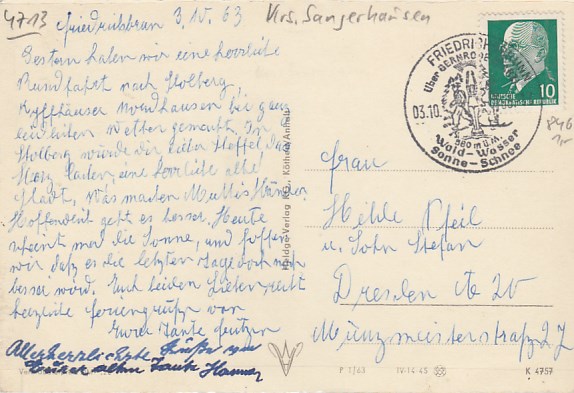 4713
Friedrichsbrunn 3.10.63
Krs. Sangerhausen
Gestern haben wir eine herrliche
Rundfahrt nach Stolberg,
Kyffhäuser Nordhausen bei ganz
Wetter gemacht. In
Stolberg würde dir, lieber Steffel, das
Herz lachen, eine herrliche alte
Stadt. Was machen Muttis Hände?
Hoffentlich geht es besser. Heute
scheint mal die Sonne, und hoffen
wir daß es die letzten Tage doch noch
besser wird. Euch beiden Lieben, recht
herzliche Feriengrüße von
Eurer Tante
Allerherzlichste Grüße von
Eurer alten Tante
Frau
Hilde Pfeil
u. Sohn Stefan
Dresden A 20
Münzmeisterstraße
FRIEDRICHSBRUNN
über BERNRODE
03.10
580 m ü. M.
Wald - Wasser
Sonne - Schnee
DEUTSCHE
DEMOKRATISCHE REPUBLIK
10
KG., Köthen/Anhalt
P 1/63
IV-14-45
K 4757